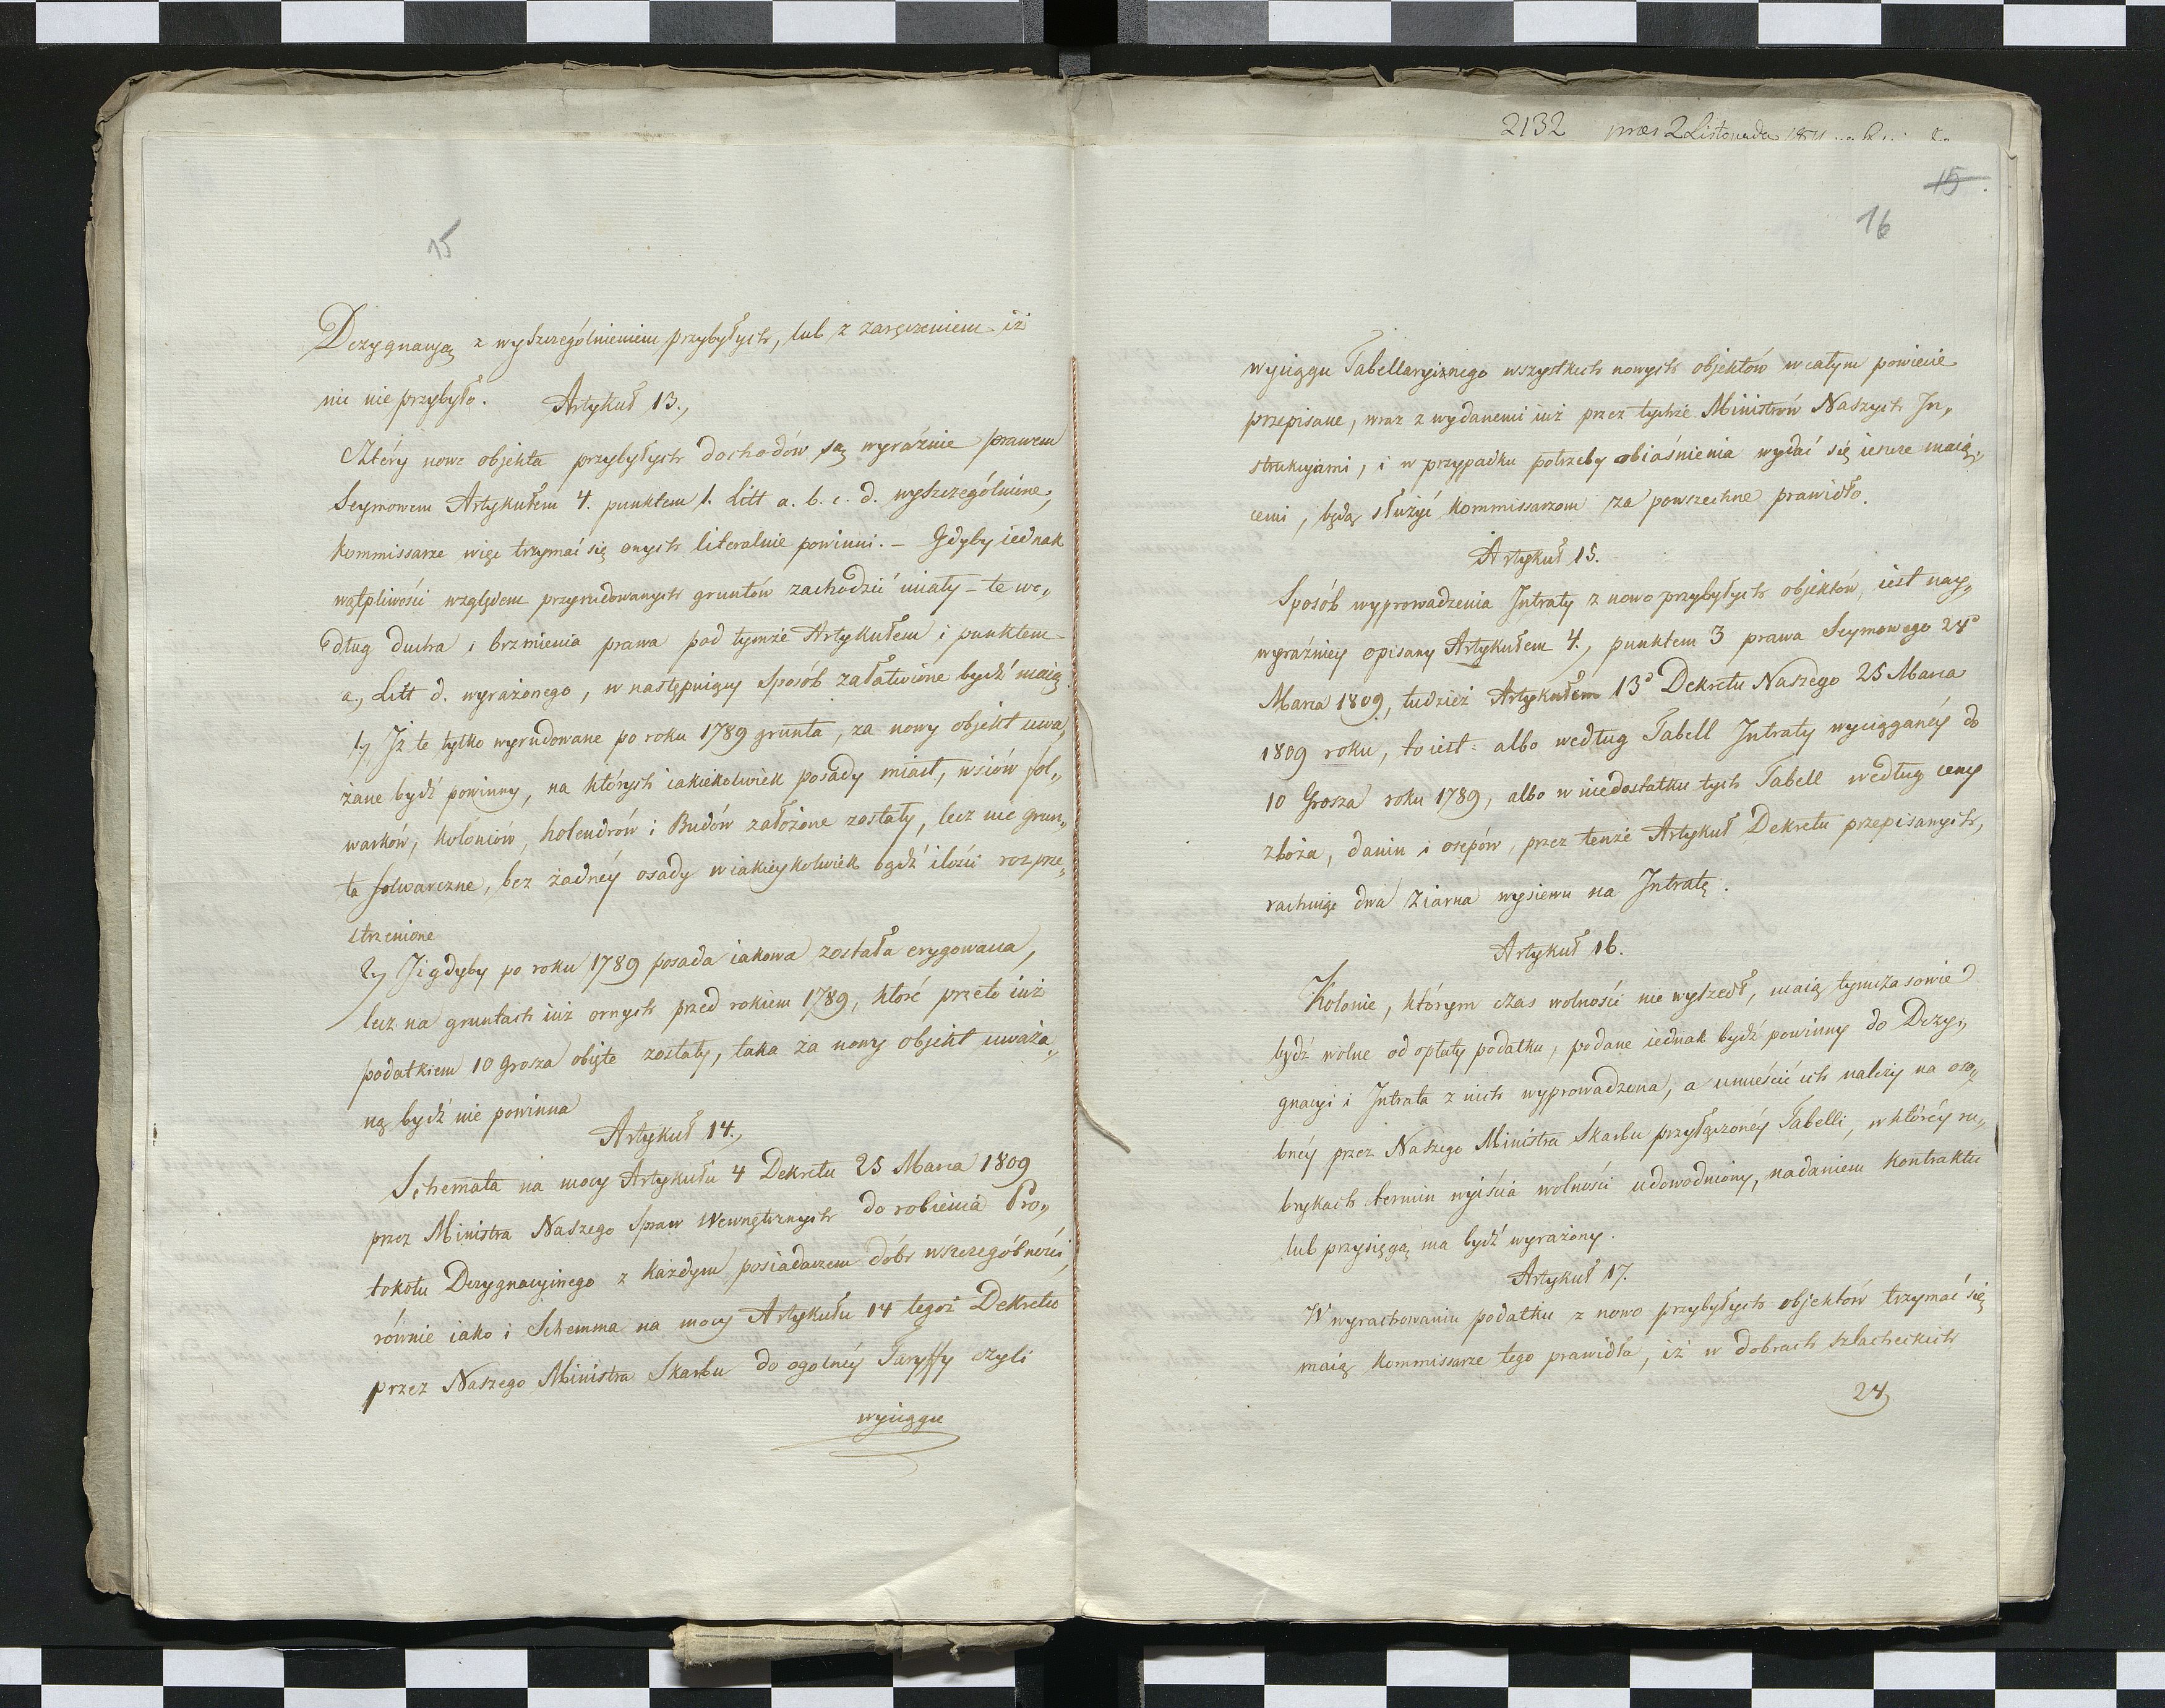 15
Dezygnacyą z wyszczególnieniem przybyłych, lub z zaręczeniem iż
nic nie przybyło.
Artykuł 13.,
Cztéry nowe objekta przybyłych dochodów są wyraźnie prawem
Seymowem Artykułem 4. punktem 1. Litt a. b. c. d. wyszczególnione,
Kommissarze więc trzymać się onych literalnie powinni. – Gdyby iednak
wątpliwości względem przyrudowanych gruntów zachodzić miały – te we„
dług ducha i brzmienia prawa pod tymże Artykułem i punktem
a., Litt d. wyrażonego, w następuiący sposób załatwione bydź maią
1,) Iż te tylko wyrudowane po roku 1789 grunta, za nowy objekt uwa„
żane bydź powinny, na których iakiekolwiek posady miast, wsiów fol„
warków, kolóniów, holendrów i Budów założone zostały, lecz nie grun„
ta folwarczne, bez żadnéy osady w iakieykolwiek bądź ilości rozprze„
strzenione
2,) Iż gdyby po roku 1789 posada iakowa została erygowana,
lecz na gruntach iuż ornych przed rokiem 1789, które przeto iuż
podatkiem 10 Grosza obięte zostały, taka za nowy objekt uważa„
ną bydź nie powinna
Artykuł 14.,
Schemata na mocy Artykułu 4 Dekretu 25 Marca 1809
przez Ministra Naszego Spraw Wewnętrznych do robienia Pro„
tokołu Dezygnacyinego z każdym posiadaczem dóbr wszczególności,
równie iako i Schemma na mocy Artykułu 14 tegoż Dekretu
przez Naszego Ministra Skarbu do ogolnéy Taryffy czyli
wyciągu
2132 præs 2 Listopada
15
16
wyciągu Tabellarycznego wszystkich nowych objektów w całym powiecie
przepisane, wraz z wydanemi iuż przez tychże Ministrów Naszych In„
strukcyami, i w przypadku potrzeby obiaśnienia wydać się ieszcze maią„
cemi, będą służyć Kommissarzom za powszechne prawidło.
Artykuł 15.
Sposób wyprowadzenia Intraty z nowo przybyłych objektów, iest nay„
wyraźniey opisany Artykułem 4., punktem 3 prawa Seymowego 24º
Marca 1809, tudzież Artykułem 13º Dekretu Naszego 25 Marca
1809 roku, to iest: albo według Tabell Intraty wyciągganéy do
10 Grosza roku 1789, albo w niedostatku tych Tabell według ceny
zboża, danin i osepów, przez tenże Artykuł Dekretu przepisanych,
rachuiąc dwa ziarna wysiewu na Intratę.
Artykuł 16.
Kolonie, którym czas wolności nie wyszedł, maią tymczasowie
bydź wolne od opłaty podatku, podane iednak bydź powinny do Dezy„
gnacyi i Intrata z nich wyprowadzona, a umieścić ich należy na oso„
bnéy przez Naszego Ministra Skarbu przyłączonéy Tabelli, w któréy ru„
brykach termin wyiścia wolności udowodniony, nadaniem Kontraktu
lub przysięgą ma bydź wyrażony.
Artykuł 17.
W wyrachowaniu podatku z nowo przybyłych objektów trzymać się
maią Kommissarze tego prawidła, iż w dobrach szlacheckich
24